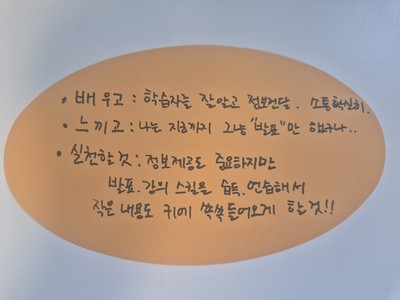 • 배우고 : 학습자를 잘알고 정보전달. 소통확실히.
• 느끼고 : 나는 지금까지 그냥 "발표"만 했구나..
• 실천할것 : 정보제공도 중요하지만
발표.강의 스킬을 습득.연습해서
작은 내용도 귀에 쏙쏙들어오게 할 것!!